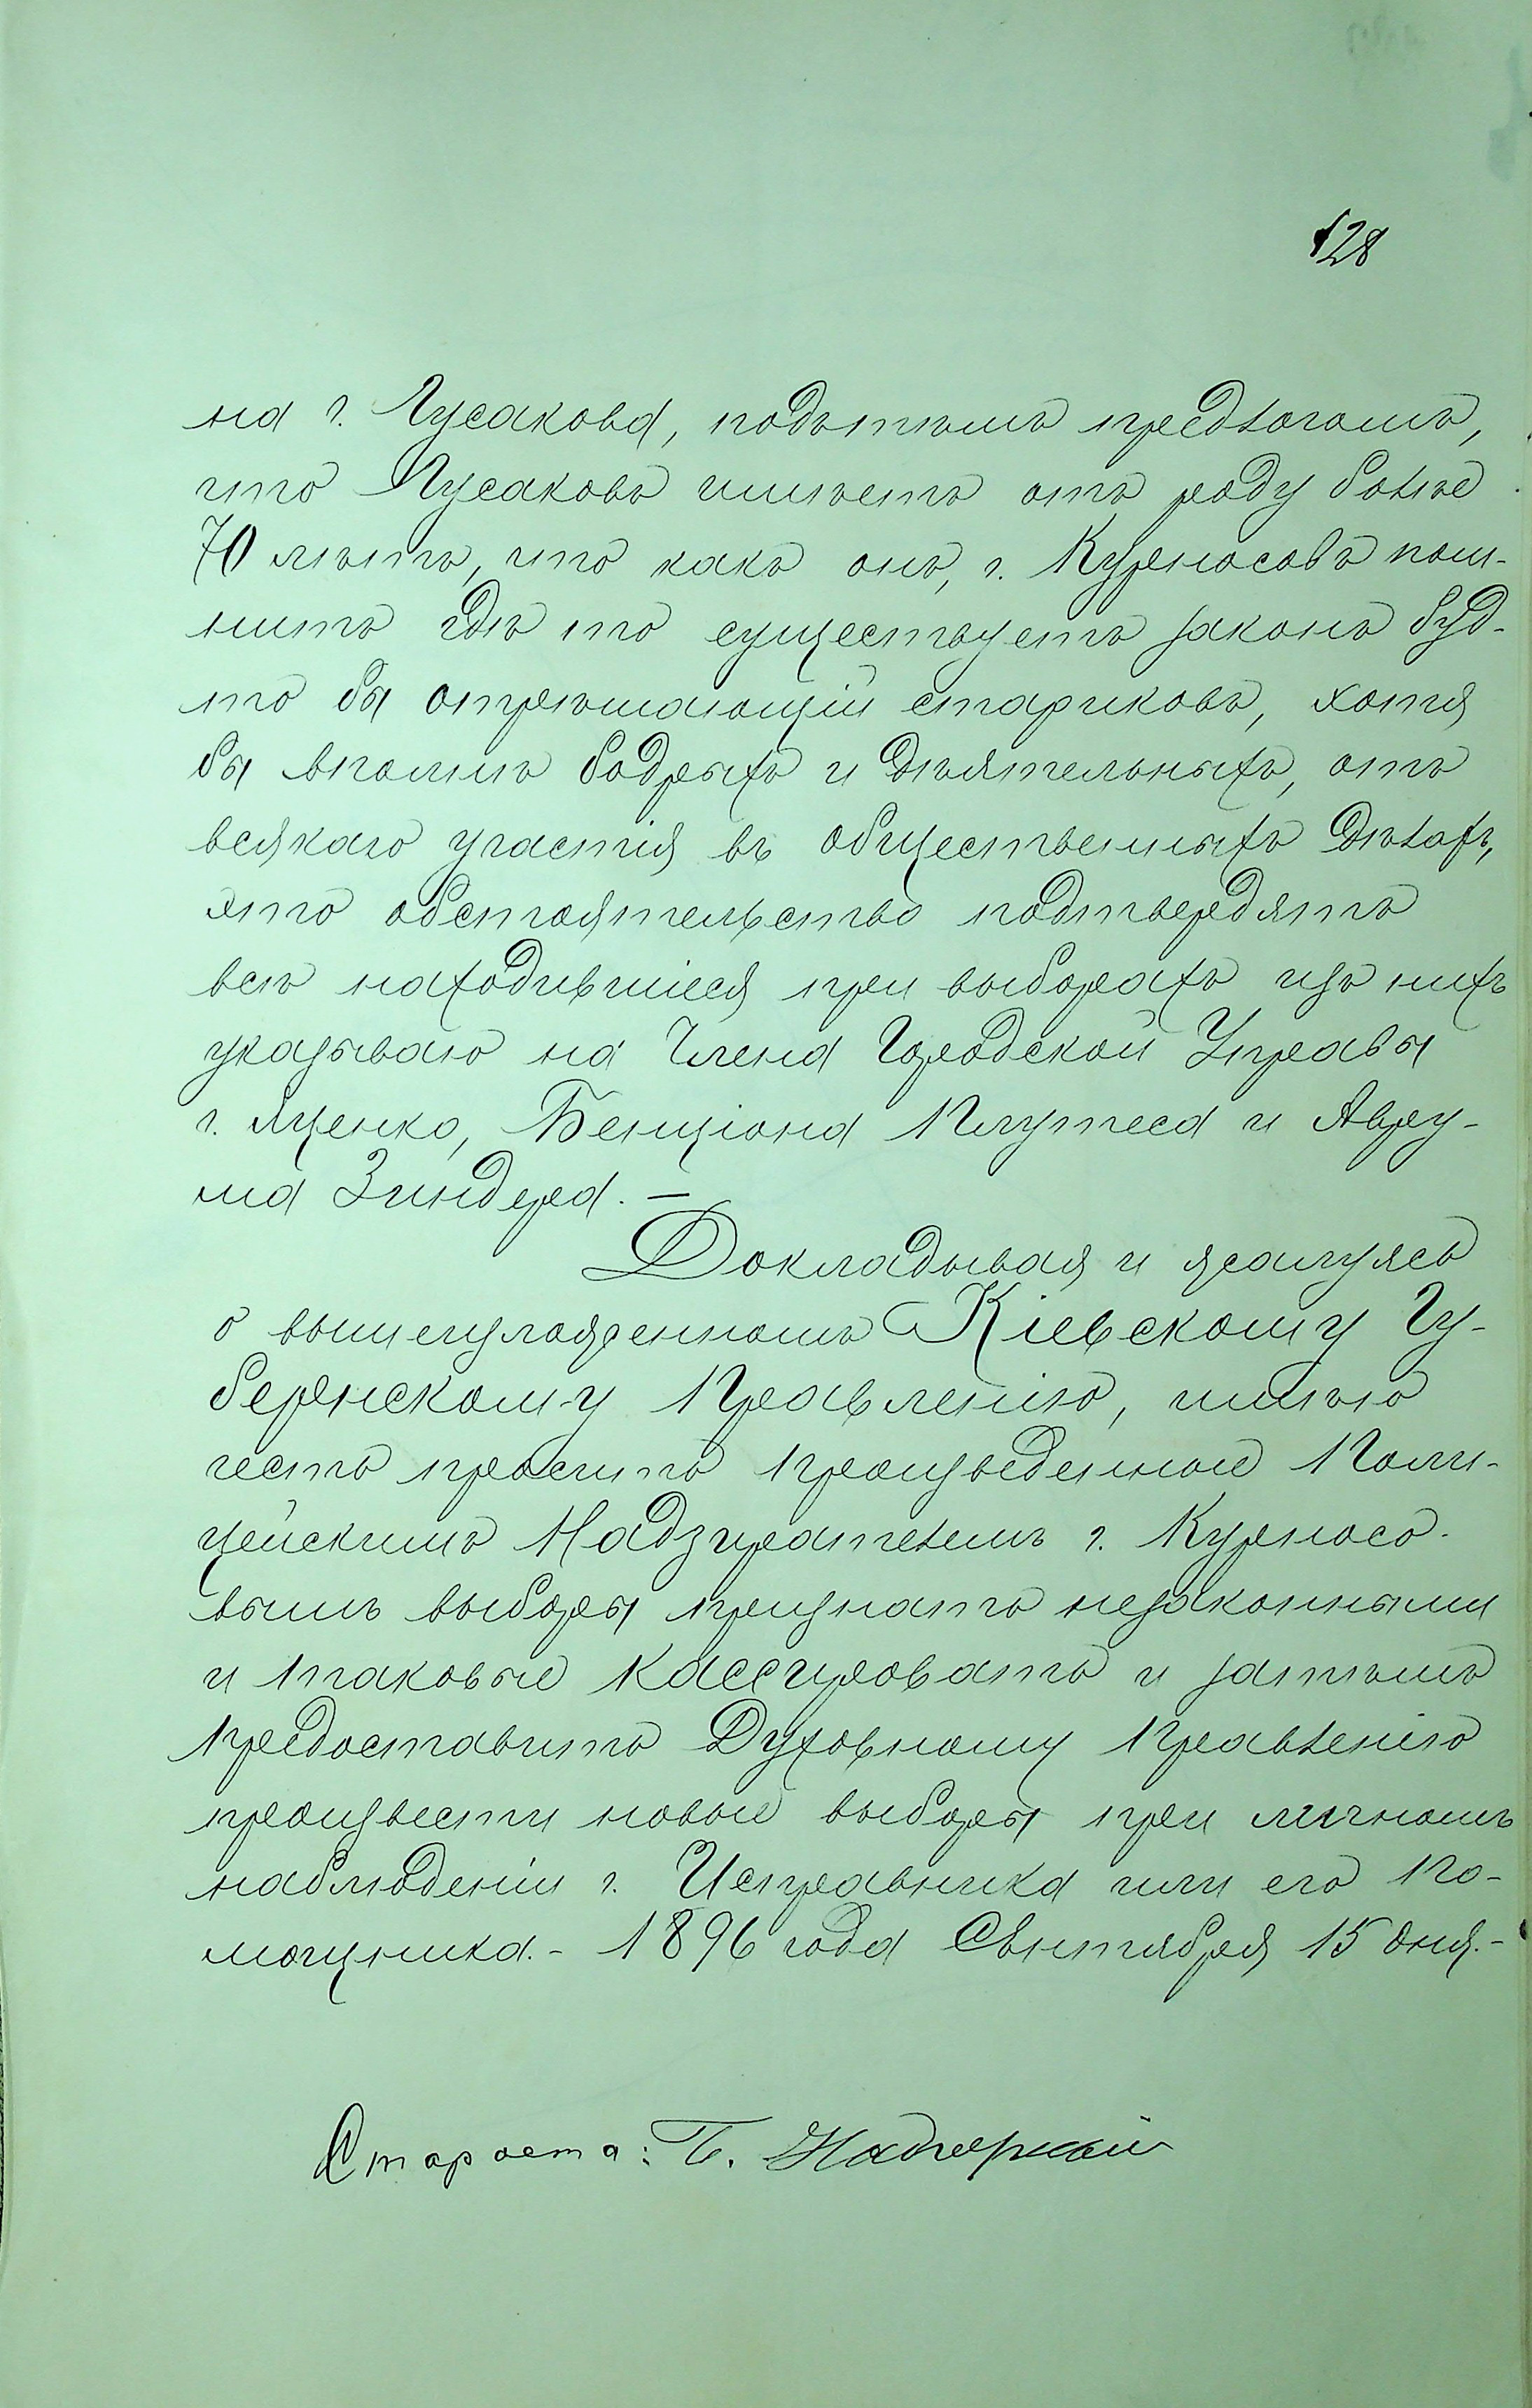 128
на г. Гусакова, подътѣмъ предлогомъ,
что Гусаковъ имѣетъ отъ роду болѣе
70 лѣтъ, что какъ онъ, г. Курносовъ пом-
нитъ гдѣ то существуетъ законъ буд-
то бы отрѣшающій стариковъ, хотя
бы вполнѣ бодрыхъ и дѣятельныхъ, отъ
всякаго участія въ общественныхъ дѣлахъ,
это обстоятельство подтвердятъ
всѣ находившіеся при выборахъ изъ нихъ
указываю на Члена Городской Управы
г. Яценко, Бенціона Плутеса и Авру-
ма Зиндера. —
Докладывая и жалуясь
о вышеизложенномъ Кіевскому Гу-
бернскому Правленію, имѣю
честь просить произведенные Поли-
цейскимъ Надзирателемъ г. Курносо-
вымъ выборы признать незаконными
и таковые кассировать и затѣмъ
предоставить Духовному Правленію
произвести новые выборы при личномъ
наблюденіи г. Исправника или его По-
мощника. - 1896 года Сентября 15 дня. -
Староста: Б.